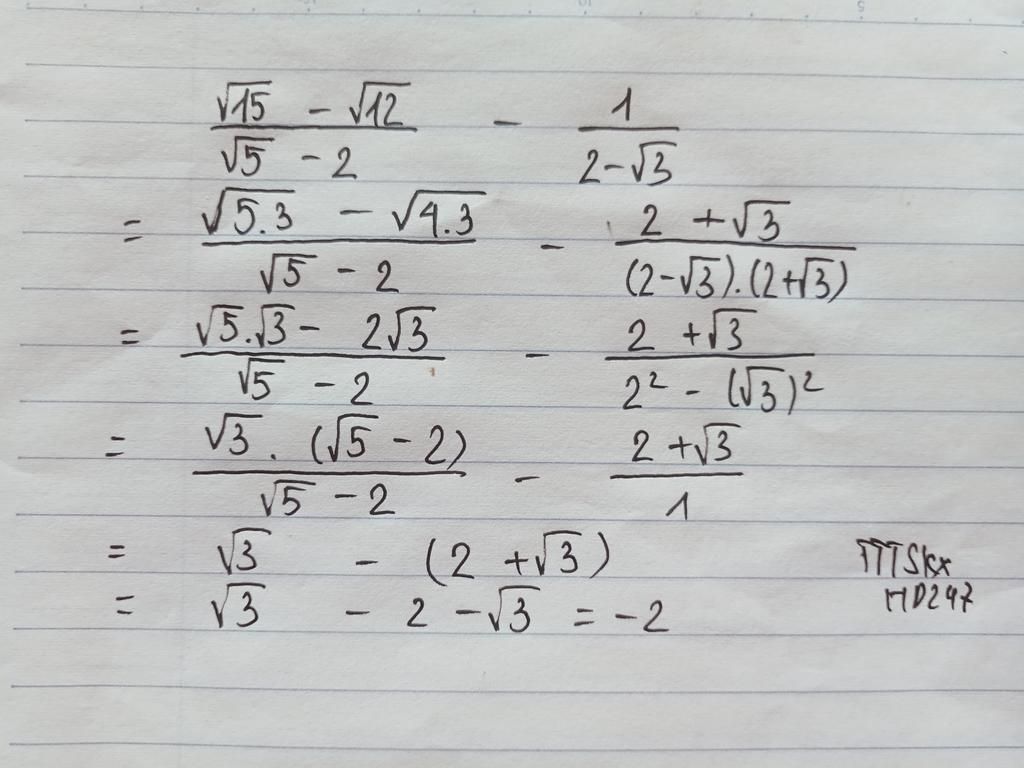 (√15 - √12)/(√5 - 2) - 1/(2-√3)
= (√5.3 - √4.3)/(√5 - 2) - (2 + √3)/((2-√3).(2+√3))
= (√5.√3 - 2√3)/(√5 - 2) - (2 + √3)/(2² - (√3)²)
= (√3 . (√5 - 2))/(√5 - 2) - (2 + √3)/1
= √3 - (2 + √3)
= √3 - 2 - √3 = -2
TTTSkx
HD247